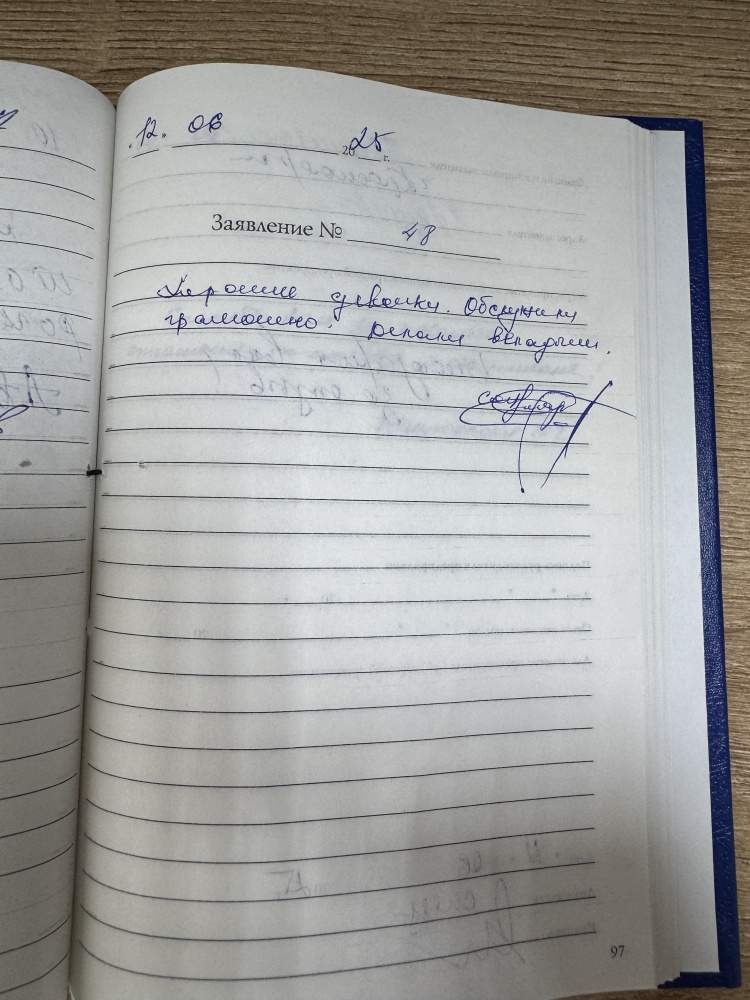 "12" 06 2025 г.
Заявление № 48
Хорошие девочки. Обслужили
грамотно. Делали вкладыши.
97